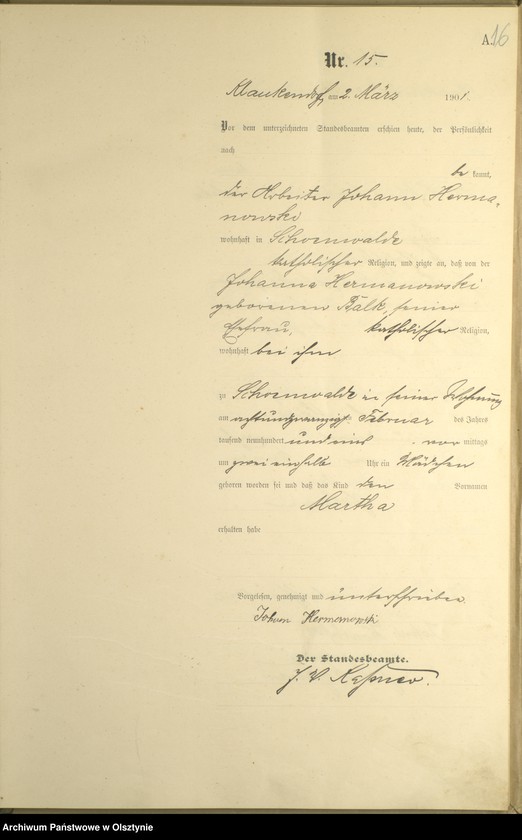 A.16
Nr. 15.
Klaukendorf, am 2. März 1901.
Vor dem unterzeichneten Standesbeamten erschien heute, der Persönlichkeit
nach
be kannt,
der Arbeiter Johann Herma-
nowski
wohnhaft in Schoenwalde
katholischer Religion, und zeigte an, daß von der
Johanna Hermanowski
geborenen Falk, seiner
Ehefrau, katholischer Religion,
wohnhaft bei ihm
zu Schoenwalde in seiner Wohnung
am achtundzwanzigst. Februar des Jahres
tausend neunhundert und eins vor mittags
um zwei einhalb Uhr ein Mädchen
geboren worden sei und daß das Kind den Vornamen
Martha
erhalten habe
Vorgelesen, genehmigt und unterschrieben.
Johann Hermanowski
Der Standesbeamte.
J. V.
Archiwum Państwowe w Olsztynie